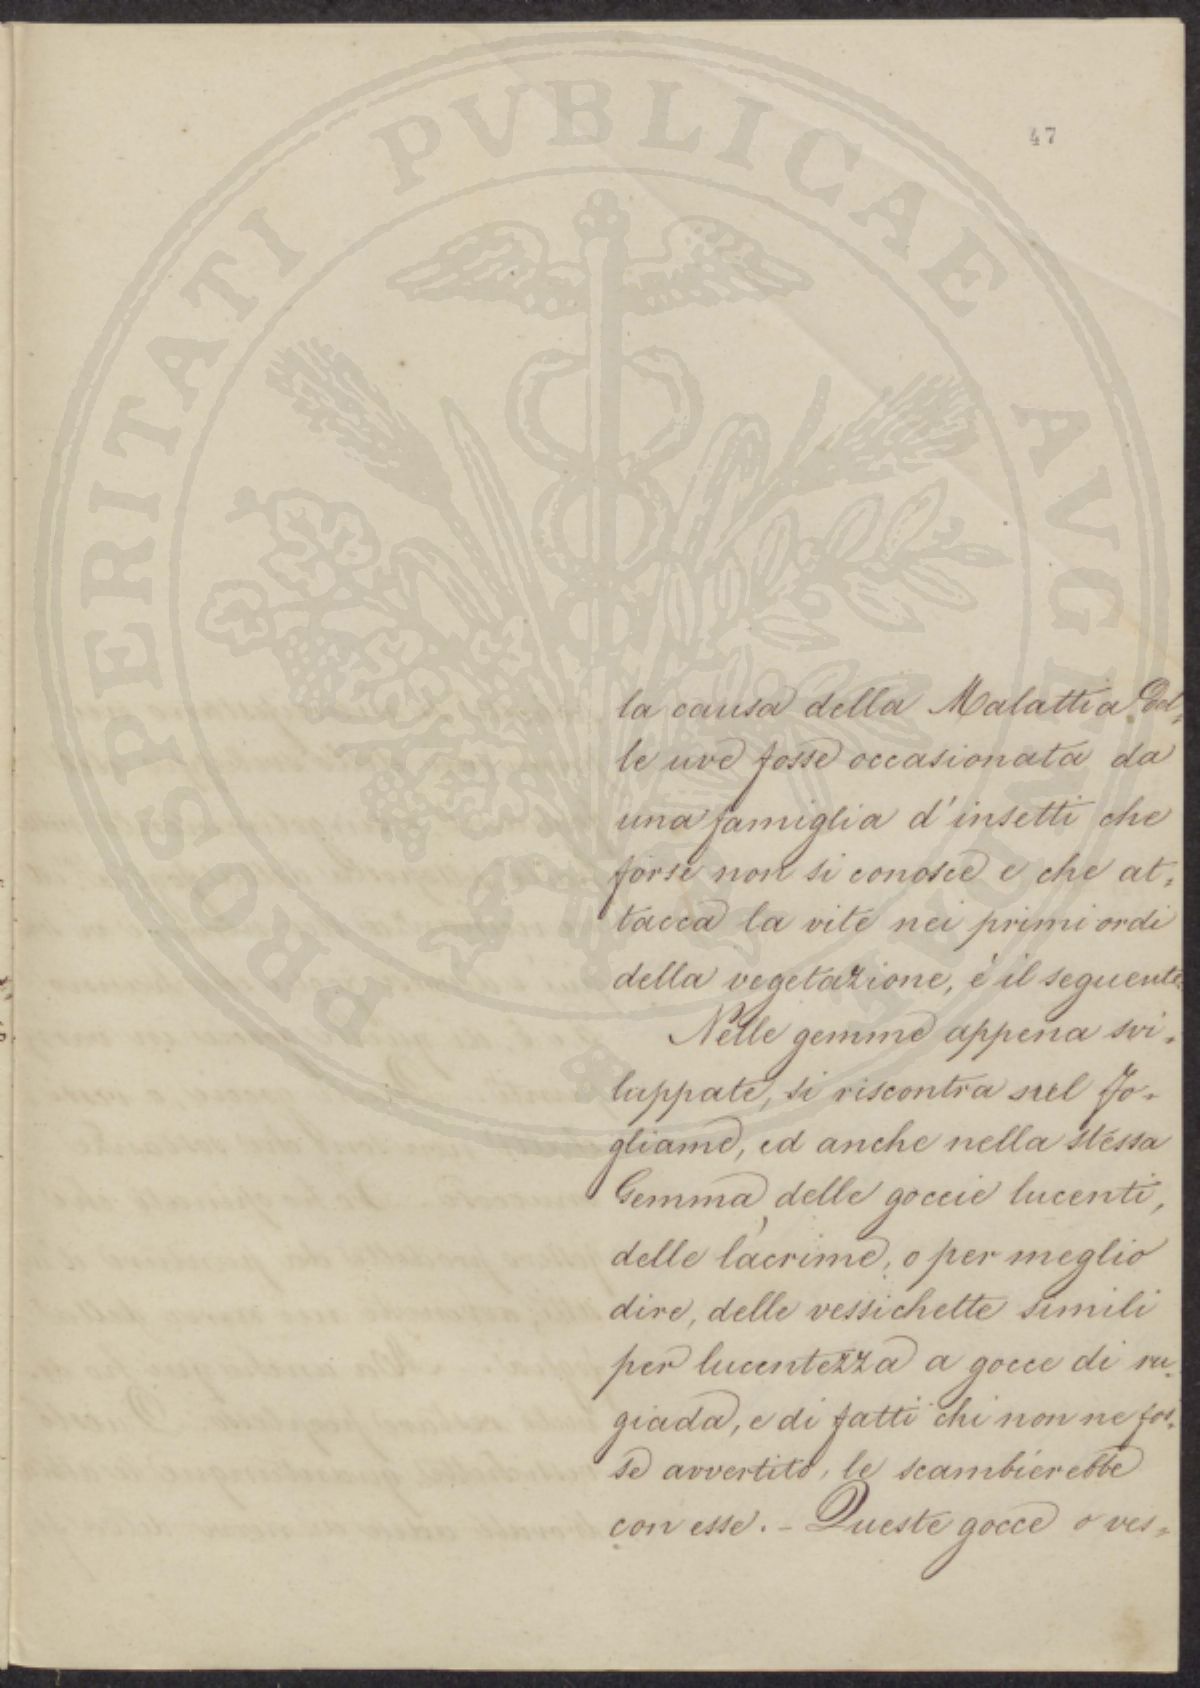 47
PROSPERITATI PVBLICAE AVGENDAE
la causa della Malattia Del-
le uve fosse occasionata da
una famiglia d'insetti che
forse non si conosce e che at-
tacca la vite nei primi ordi
della vegetazione, è il seguente.
Nelle gemme appena svi-
luppate, si riscontra nel fo-
gliame, ed anche nella stessa
Gemma, delle goccie lucenti,
delle lacrime, o per meglio
dire, delle vessichette simili
per lucentezza a gocce di ru-
giada, e di fatti chi non ne fos-
se avvertito, le scambierebbe
con esse. - Queste gocce o ves-